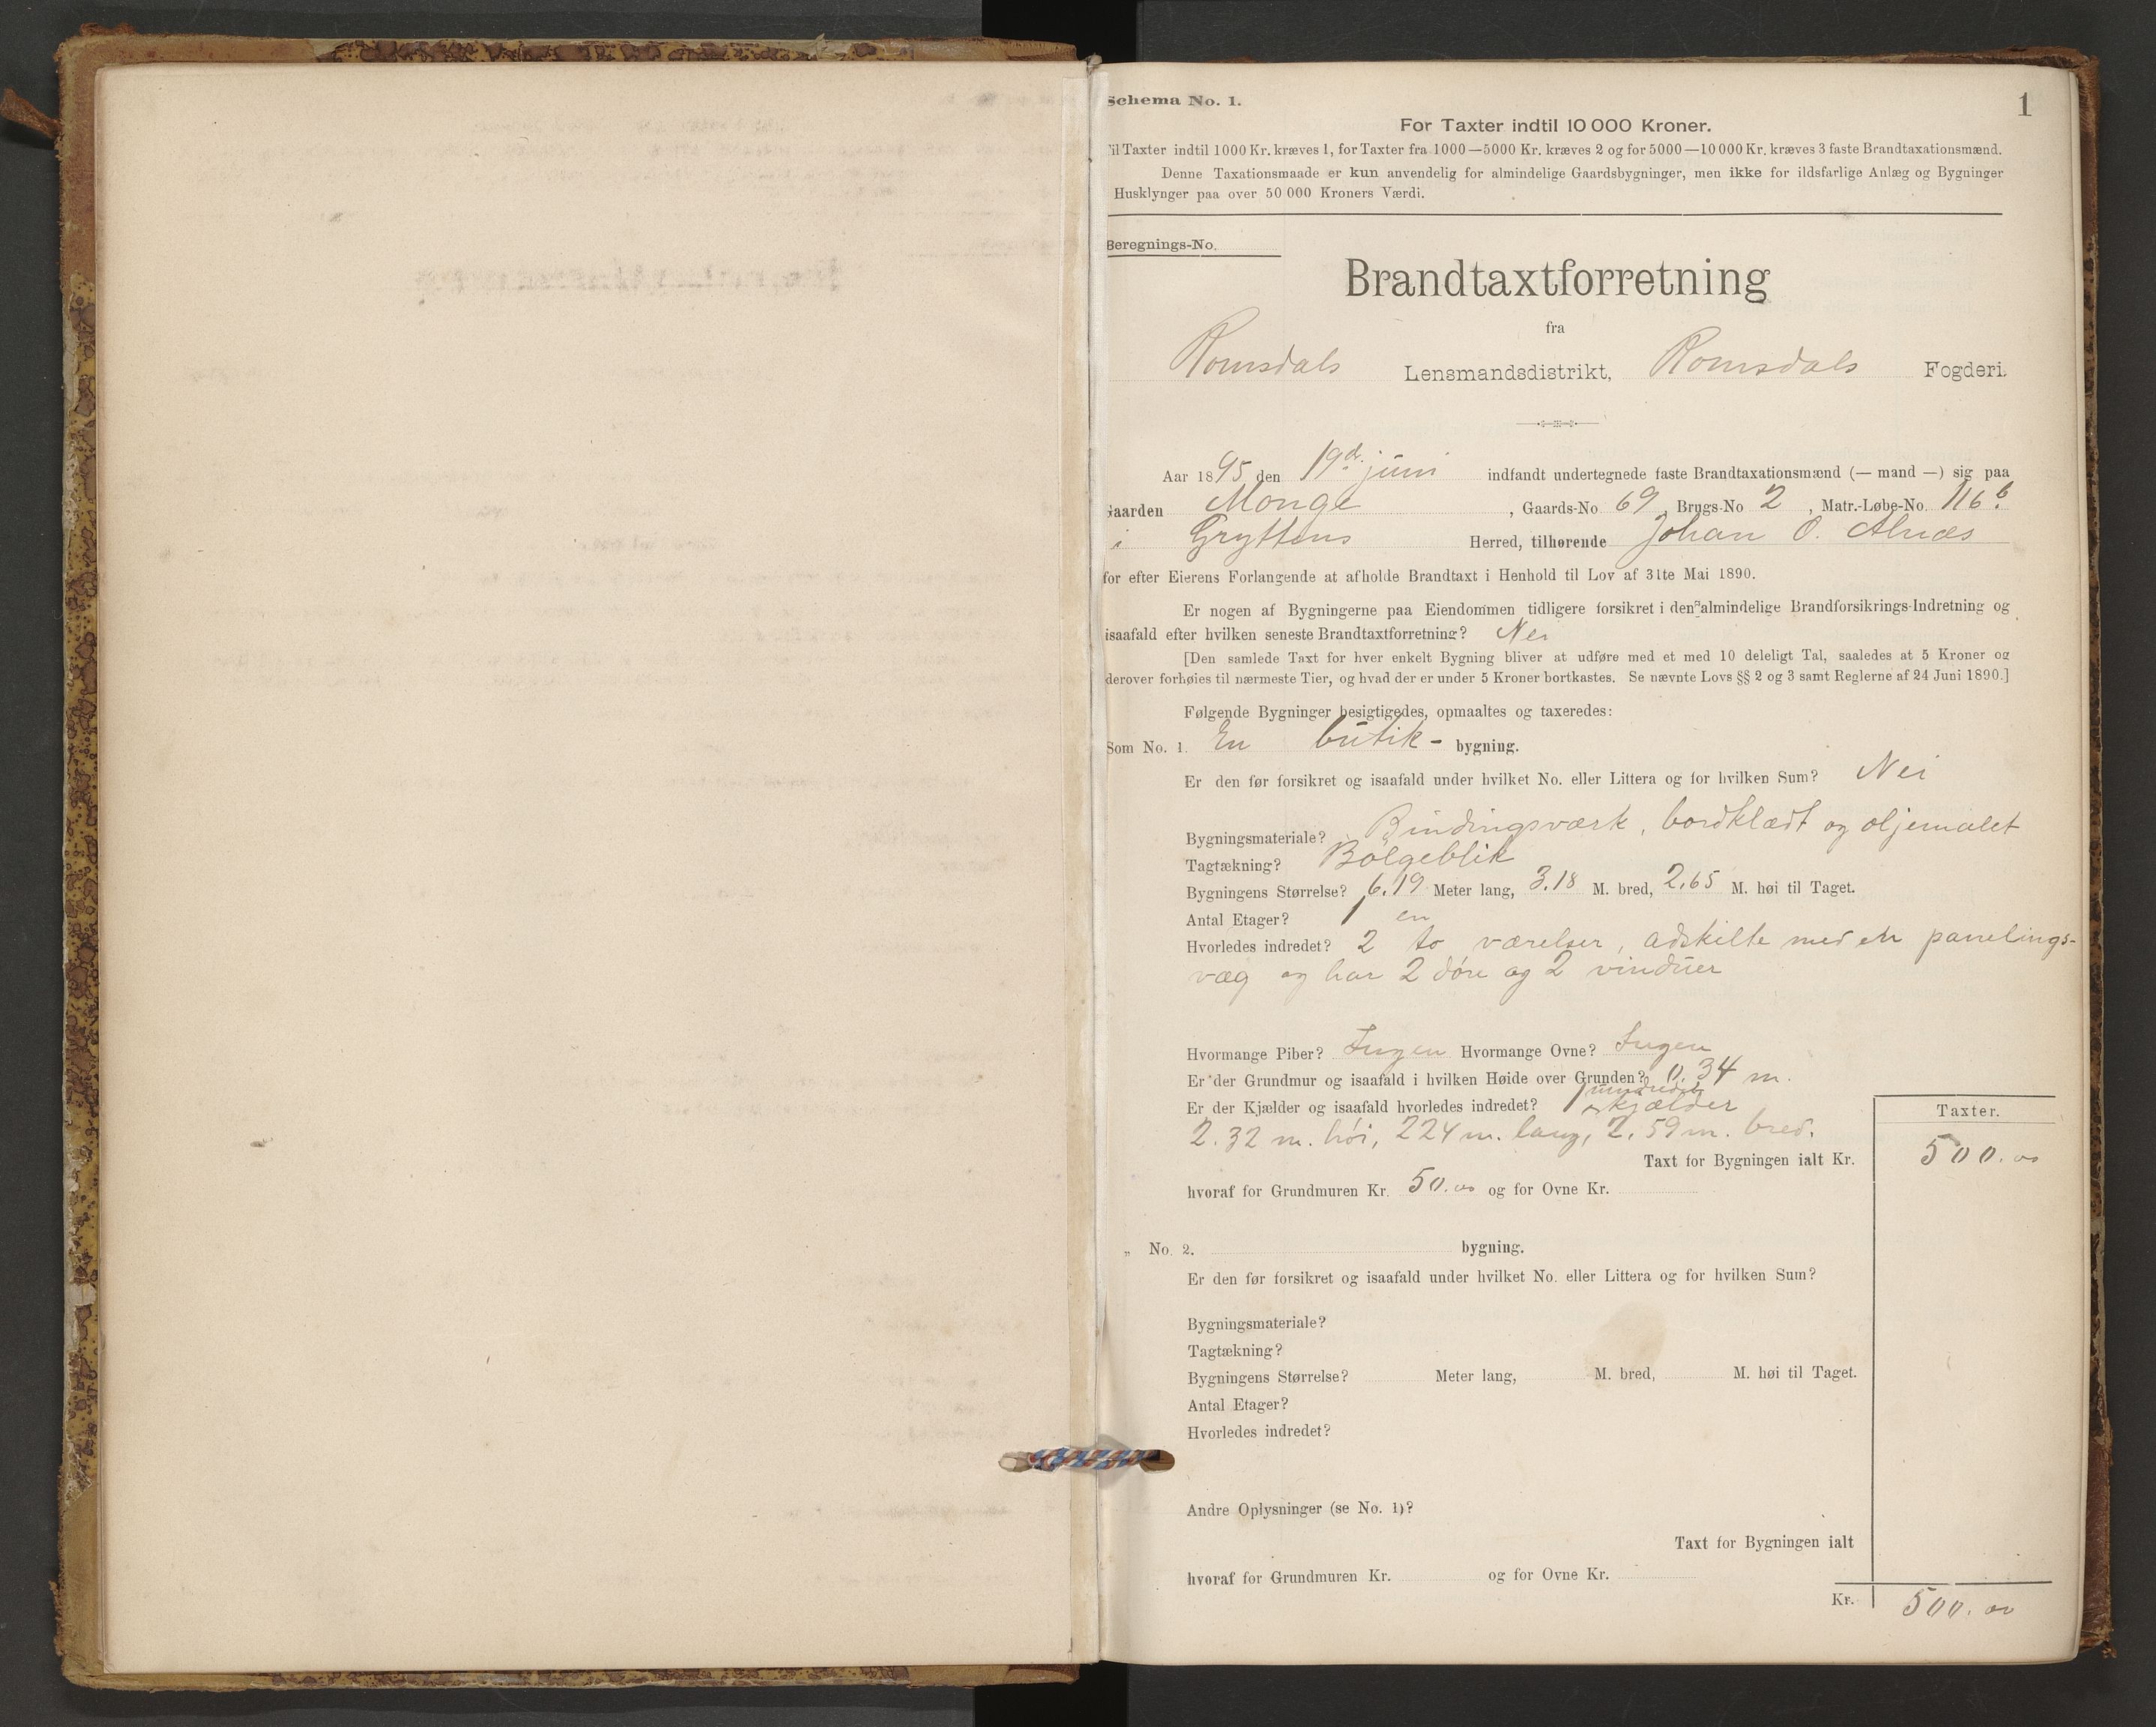 Schema No. 1.
1
For Taxter indtil 10 000 Kroner.
Til Taxter indtil 1000 Kr. kræves 1, for Taxter fra 1000—5000 Kr. kræves 2 og for 5000—10 000 Kr. kræves 3 faste Brandtaxationsmænd.
Denne Taxationsmaade er kun anvendelig for almindelige Gaardsbygninger, men ikke for ildsfarlige Anlæg og Bygninger
Husklynger paa over 50 000 Kroners Værdi.
Beregnings-No.
Brandtaxtforretning
fra
Romsdals Lensmandsdistrikt, Romsdals Fogderi.
Aar 1895 den 19de juni indfandt undertegnede faste Brandtaxationsmænd (— mand —) sig paa
Gaarden Monge, Gaards-No 69, Brugs-No 2, Matr.-Løbe-No. 116b.
i Gryttens Herred, tilhørende Johan O. Alnæs
for efter Eierens Forlangende at afholde Brandtaxt i Henhold til Lov af 31te Mai 1890.
Er nogen af Bygningerne paa Eiendommen tidligere forsikret i den almindelige Brandforsikrings-Indretning og
isaafald efter hvilken seneste Brandtaxtforretning? Nei
[Den samlede Taxt for hver enkelt Bygning bliver at udføre med et med 10 deleligt Tal, saaledes at 5 Kroner og
derover forhøies til nærmeste Tier, og hvad der er under 5 Kroner bortkastes. Se nævnte Lovs §§ 2 og 3 samt Reglerne af 24 Juni 1890.]
Følgende Bygninger besigtigedes, opmaaltes og taxeredes:
Som No. 1. En butik- bygning.
Er den før forsikret og isaafald under hvilket No. eller Littera og for hvilken Sum? Nei
Bygningsmateriale? Bindingsværk, bordklædt og oljemalet
Tagtækning? Bölgeblik
Bygningens Størrelse? 6.19 Meter lang, 3.18 M. bred, 2.65 M. høi til Taget.
Antal Etager? 1 en
Hvorledes indredet? 2 to værelser, adskilte med en panelings-
væg og har 2 döre og 2 vinduer
Hvormange Piber? Ingen Hvormange Ovne? Ingen
Er der Grundmur og isaafald i hvilken Høide over Grunden? 0.34 m.
Er der Kjælder og isaafald hvorledes indredet? 1 uindredet kjælder
2.32 m. höi, 2.24 m. lang, 2.59 m. bred.
Taxter.
Taxt for Bygningen ialt Kr. 500.00
hvoraf for Grundmuren Kr. 50.00 og for Ovne Kr.
„ No. 2. bygning.
Er den før forsikret og isaafald under hvilket No. eller Littera og for hvilken Sum?
Bygningsmateriale?
Tagtækning?
Bygningens Størrelse? Meter lang, M. bred, M. høi til Taget.
Antal Etager?
Hvorledes indredet?
Andre Oplysninger (se No. 1)?
Taxt for Bygningen ialt
hvoraf for Grundmuren Kr. og for Ovne Kr.
Kr. 500.00